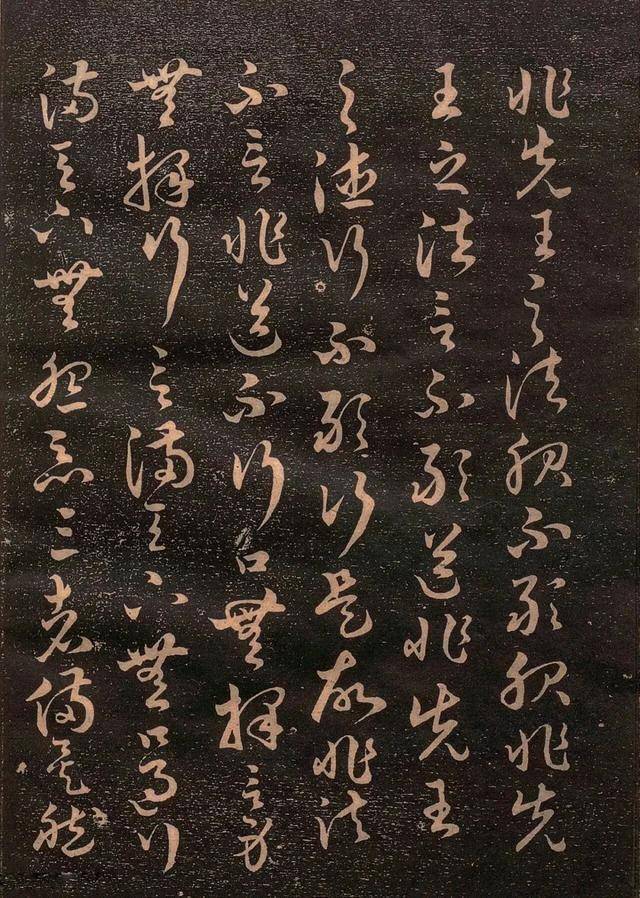 非先王之法服不敢服非先
王之法言不敢道非先王
之德行不敢行是故非法
不言非道不行口無擇言身
無擇行言滿天下無口過行
滿天下無怨惡三者備矣然